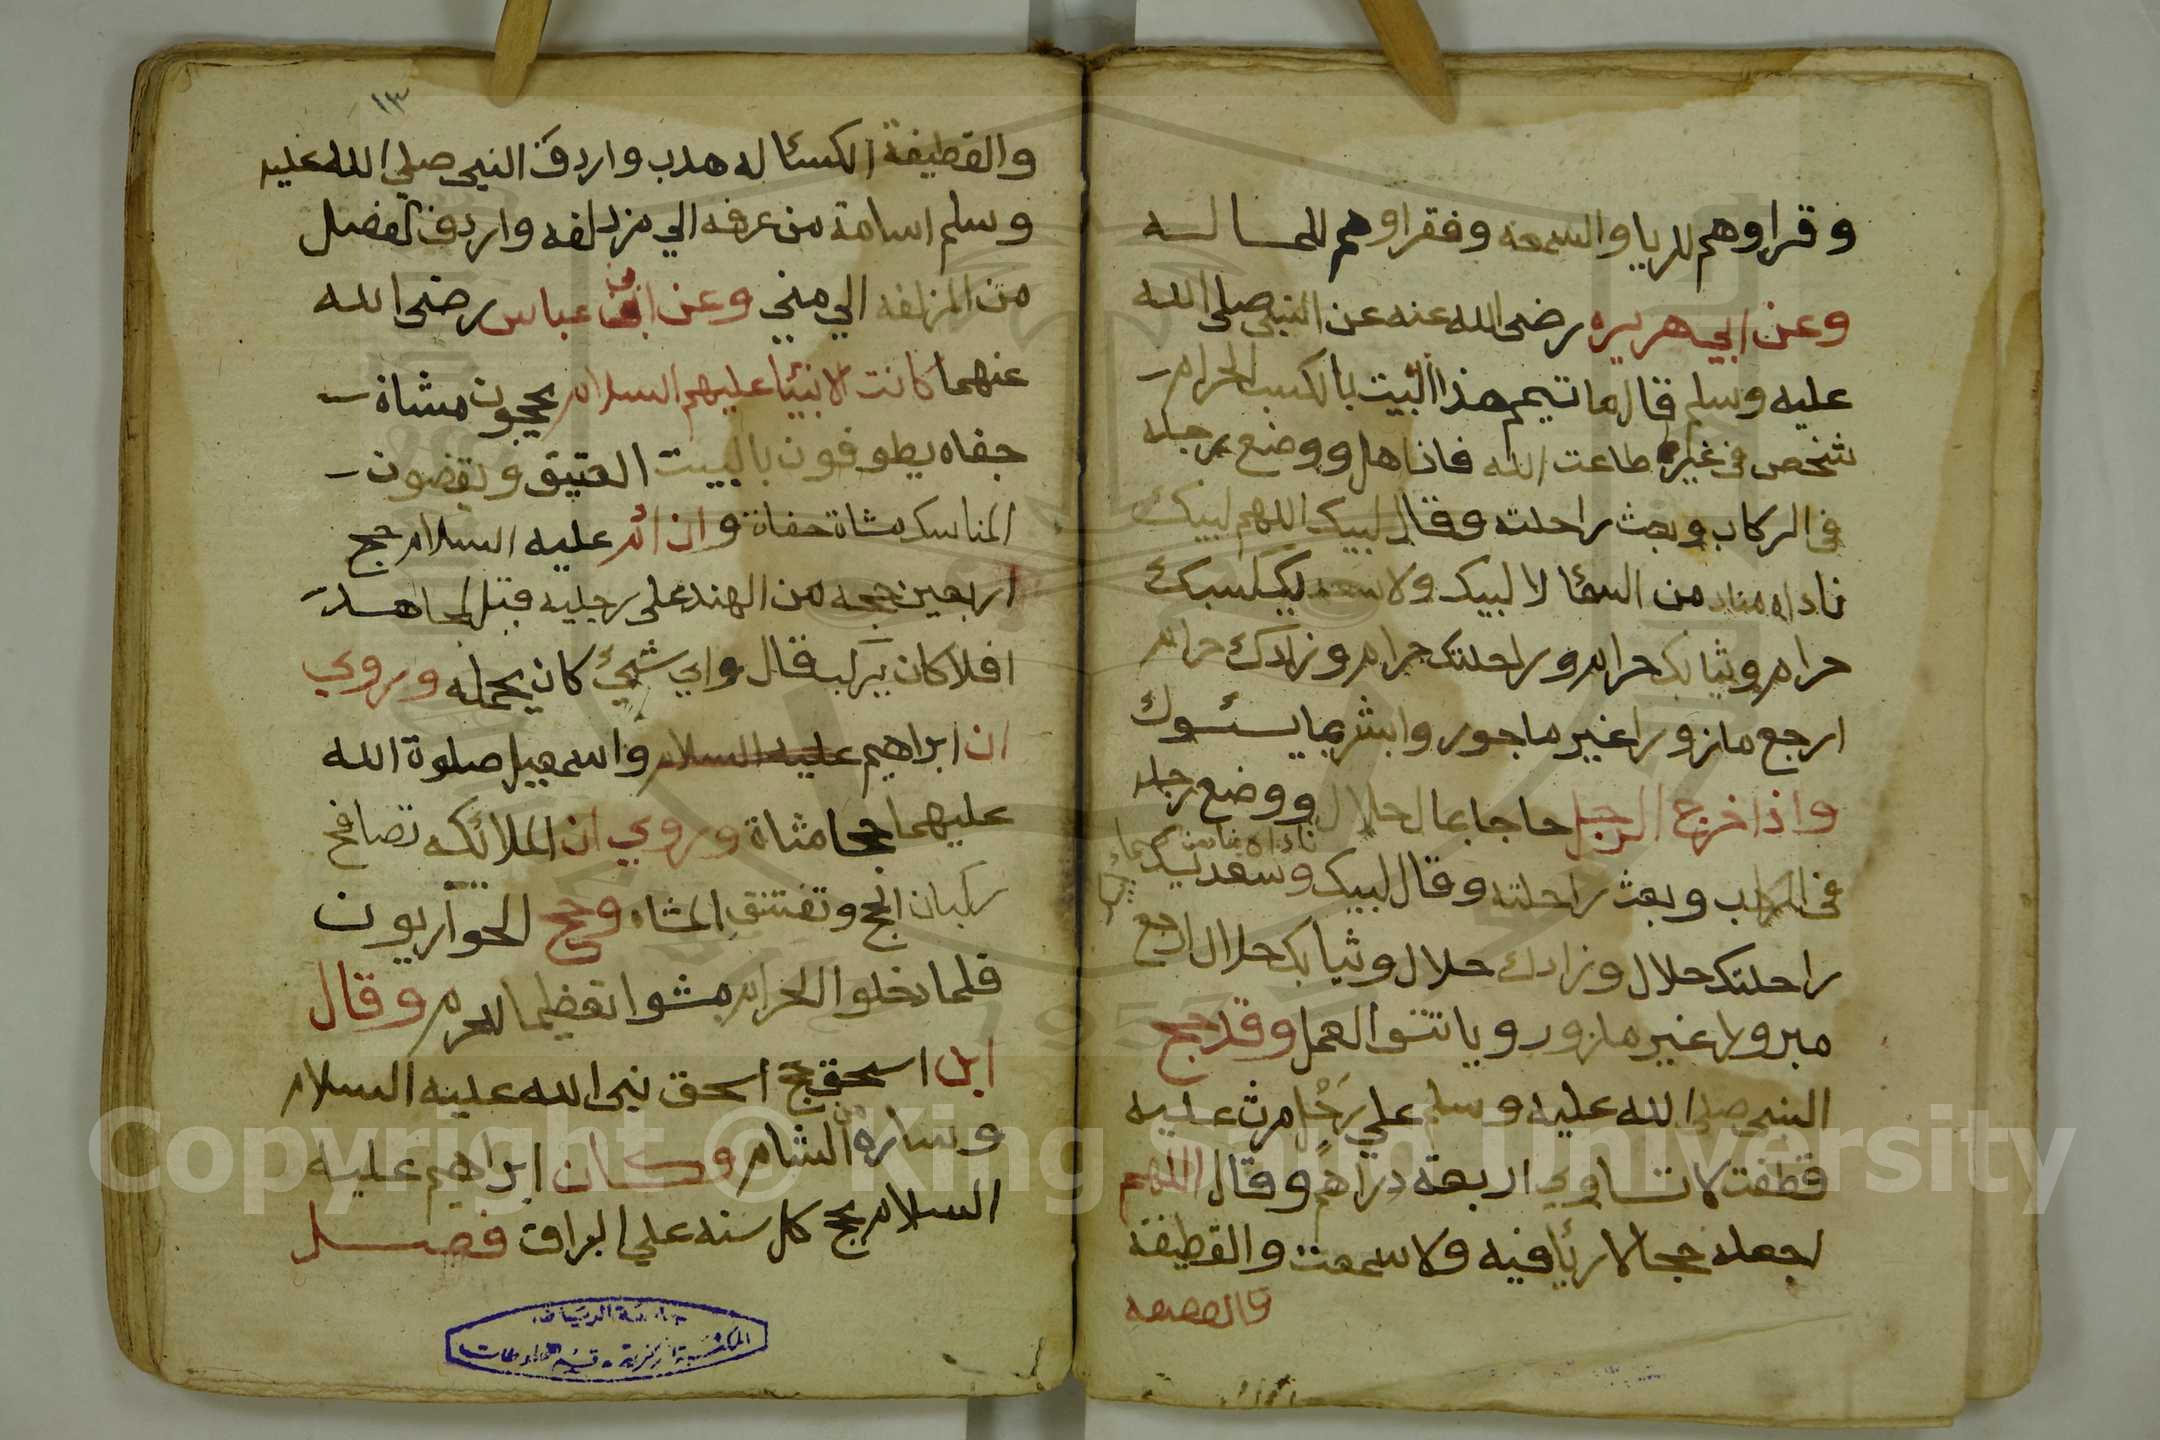 وقراوهم للريا والسمعه وفقراوهم للمسالسه
وعن ابي هريره رضى الله عنه عن النبي صلى الله
عليه وسلم قال ما تيمم هذا البيت بالكسب الحرام
شخص في غير طاعت الله فاذا اهل ووضع رجله
في الركاب وبعث راحلته وقال لبيك اللهم لبيك
ناداه مناد من السما لا لبيك ولا سعديك كسبك
حرام وثيابك حرام وراحلتك حرام وزادك حرام
ارجع مازورا غير ماجور وابشر بما يسئوك
واذا خرج الرجل حاجا بمال حلال ووضع رجله
في الركاب وبعث راحلته وقال لبيك وسعديك
ناداه مناد من السماء
راحلتك حلال وزادك حلال وثيابك حلال ارجع
مبرورا غير مازور وياتنتوا العمل وقد حج
النبي صلى الله عليه وسلم علي رحل مرث عليه
قطفت لا تساوي اربعة دراهم وقال اللهم
اجعله حجا لا رئيا فيه ولا سمعت والقطيفة
والقطيفه
١٣
والقطيفة الكسئا له هدب واردف النبي صلي الله عليه
وسلم اسامة من عرفه الي مزدلفه واردف الفضل
من المزلفه الي مني وعن ابن عباس رضى الله
عنهما كانت الانبئيا عليهم السلام يحجون مشاة
حفاه يطوفون بالبيت العتيق ويقضون
المناسك مشاة حفاة وان ادم عليه السلام حج
اربعين حجه من الهند على رجليه قيل لمجاهد
افلا كان يركب قال واي شيئ كان يحمله وروي
ان ابراهيم عليه السلام واسمعيل صلوة الله
عليهما حجا مشاة وروي ان الملائكه تصافح
ركبان الحج وتعتنق المشاه وحج الحواريون
فلما دخلوا الحرام مشوا تعظيما للحرم وقال
ابن اسحق حج اسحق نبي الله عليه السلام
وساره من الشام وكان ابراهيم عليه
السلام يحج كل سنه علي البراق فصل
جامعة الرياض
المكتبة المركزية - قسم المخطوطات
Copyright © King Saud University
1957